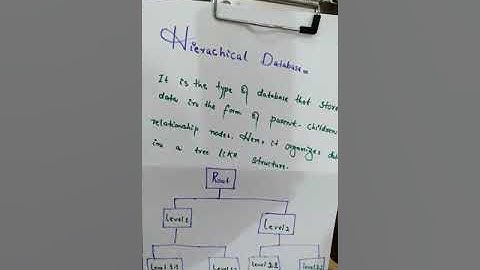 Hierachical Database
It is the type of database that store
data in the form of parent-children
relationship nodes. Here it organizes data
in a tree like structure.
Root
Level 1
Level 2
Level 1.1
Level 2.1